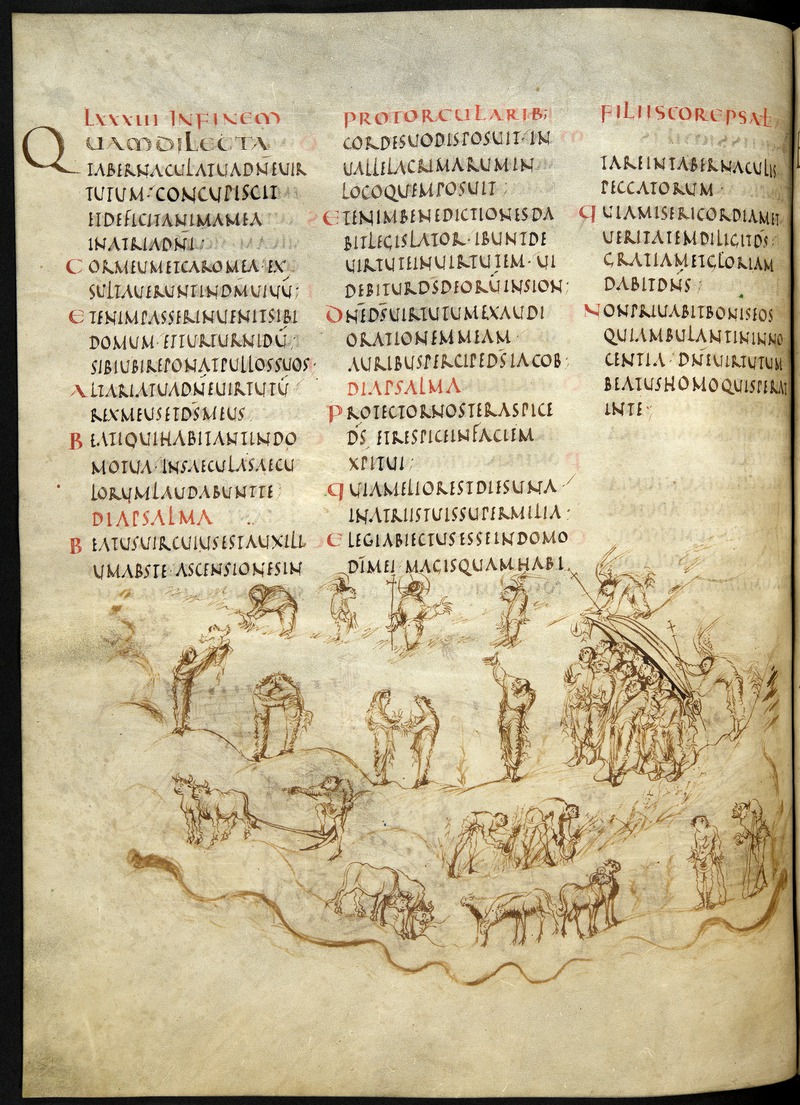 LXXXIII INFINEM PROTORCULARIB; FILIISCOREPSAL
QUAMDILECTA
TABERNACULATUADNEUIR
TUTUM· CONCUPISCIT
ETDEFICITANIMAMEA
INATRIADNI·
CORMEUMETCAROMEA· EX
SULTAUERUNTINDMUIUU;
ETENIMPASSERINUENITSIBI
DOMUM· ETTURTURNIDU·
SIBIUBIREPONATPULLOSSUOS·
ALTARIATUADNEUIRTUTU·
REXMEUSETDSMEUS
BEATIQUIHABITANTINDO
MOTUA· INSAECULASAECU
LORUMLAUDABUNTTE·
DIAPSALMA
BEATUSUIRCUIUSESTAUXILI
UMABSTE· ASCENSIONESIN
CORDESUODISPOSUIT· IN
UALLELACRIMARUMIN
LOCOQUEMPOSUIT·
ETENIMBENEDICTIONESDA
BITLEGISLATOR· IBUNTDE
UIRTUTEINUIRTUTEM· UI
DEBITURDSDEORUINSION·
DNEDSUIRTUTUMEXAUDI
ORATIONEMMEAM·
AURIBUSPERCIPEDSIACOB·
DIAPSALMA
PROTECTORNOSTERASPICE
DS ETRESPICEINFACIEM
XPITUI·
QUIAMELIORESTDIESUNA
INATRIISTUISSUPERMILIA·
ELEGIABIECTUSESSEINDOMO
DIMEI· MAGISQUAMHABI
TAREINTABERNACULIS
PECCATORUM·
QUIAMISERICORDIAMET
UERITATEMDILIGITDS·
GRATIAMETGLORIAM
DABITDNS·
NONPRIUABITBONISEOS
QUIAMBULANTININNO
CENTIA· DNEUIRTUTUM
BEATUSHOMOQUISPERAT
INTE·